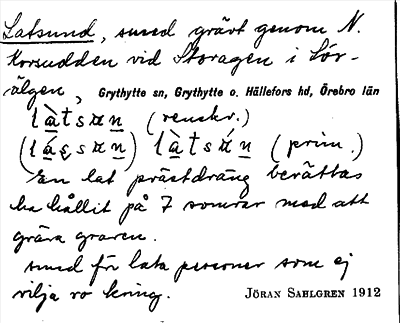 Latsund, smed grävt genom N.
Korsudden vid Storagen i Sör-
älgen, Grythytte sn, Grythytte o. Hällefors hd, Örebro län
làtsɑn (renskr.)
(láꞩsɑn) làtsɑ́n (prim.)
En lat prästdräng berättas
ha hållit på 7 somrar med att
gräva graven.
smed för lata personer som ej
vilja ro kring. JÖRAN SAHLGREN 1912